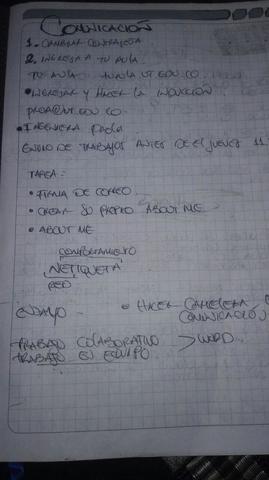 COMUNICACIÓN
1. CAMBIAR CONTRASEÑA
2. INGRESAR A TU AULA.
TU AULA UT.EDU.CO
• INGRESAR Y HACER LA INDUCCIÓN
@UT.EDU.CO
• INGENIERA Paola
ENVIO DE TRABAJOS ANTES DE EL JUEVES 11
TAREA:
• FIRMA DE CORREO.
• CREAR SU PROPIO ABOUT ME
• ABOUT ME
COMPORTAMIENTO
NETIQUETA
RED
ENSAYO
• HACER CARTELERA
COMUNICACIÓN
TRABAJO COLABORATIVO > WORD.
TRABAJO EN EQUIPO